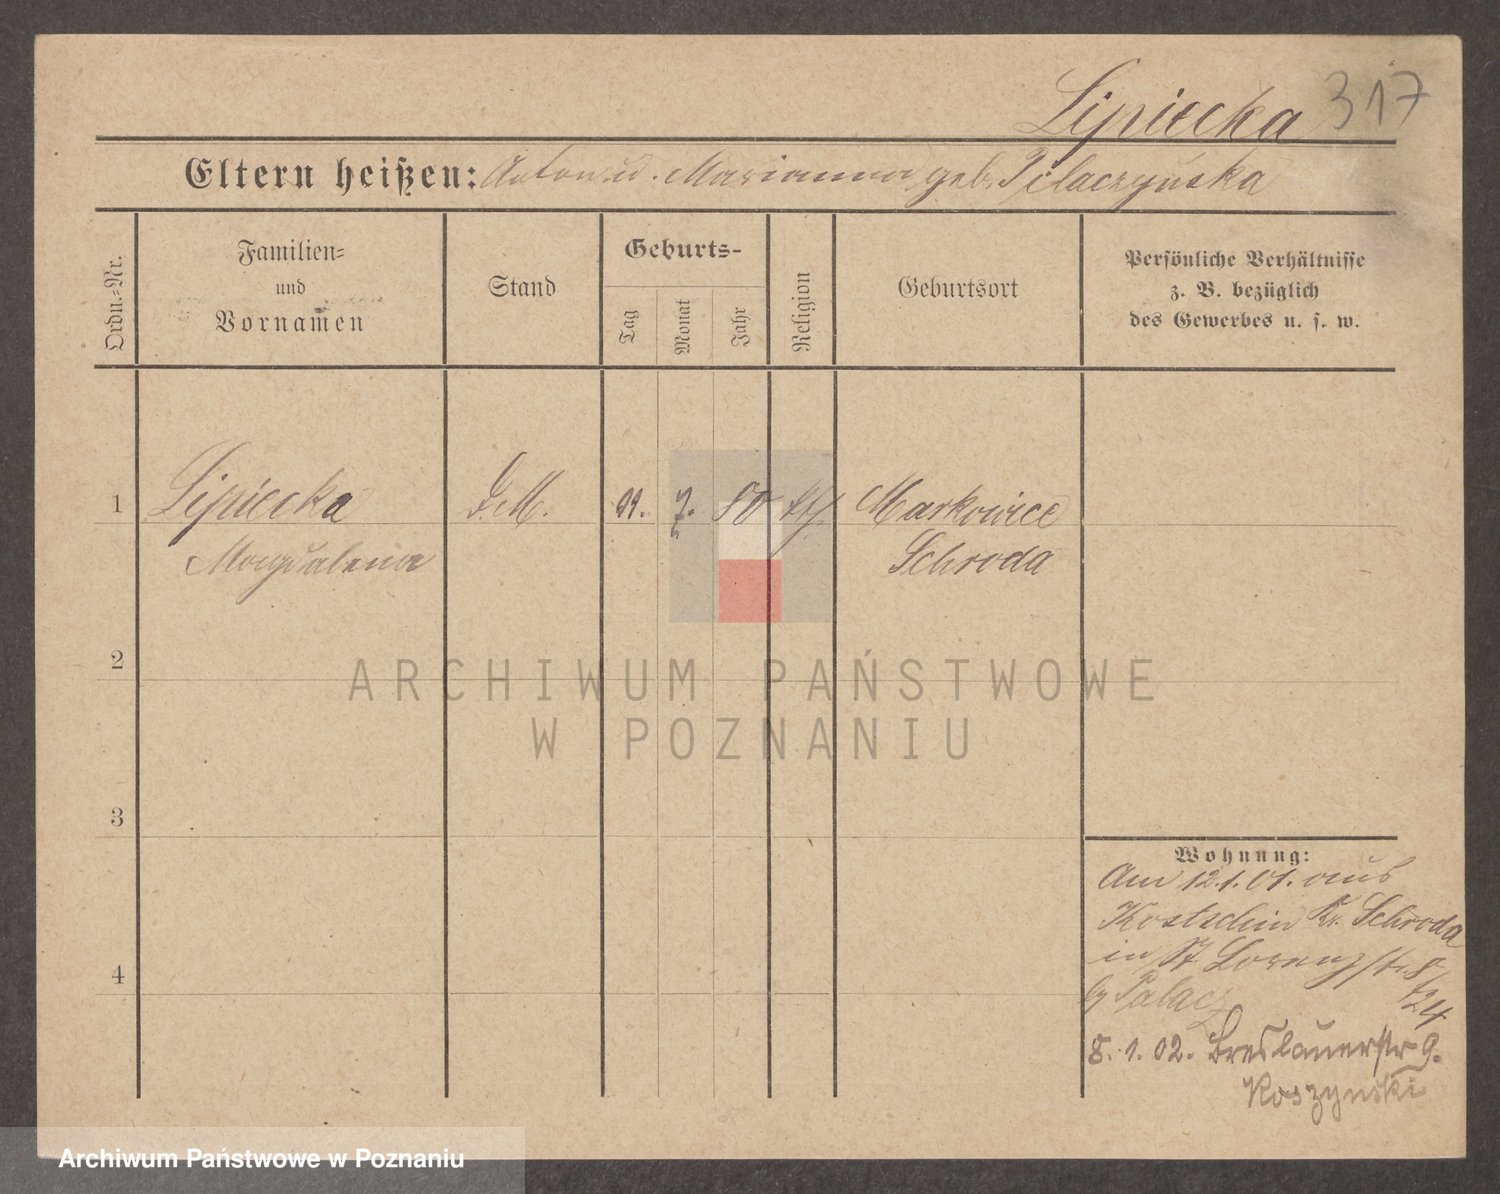 Lipiecka 317
Eltern heißen: Anton u. Marianna geb. Pilaczyńska
Ordn.-Nr.
Familien-
und
Vornamen
Stand
Geburts-
Tag
Monat
Jahr
Religion
Geburtsort
Persönliche Verhältnisse
z. B. bezüglich
des Gewerbes u. s. w.
1
Lipiecka
D.M.
7.
80
kth
Markowice
Magdalena
Schroda
2
ARCHIWUM PAŃSTWOWE
W POZNANIU
3
4
Wohnung:
Am 12.1.01. aus
Kostschin Kr. Schroda
in St Lorenzstr. 8
Palacz
8.1.02. Breslauerstr 9.
Koszynski
Archiwum Państwowe w Poznaniu